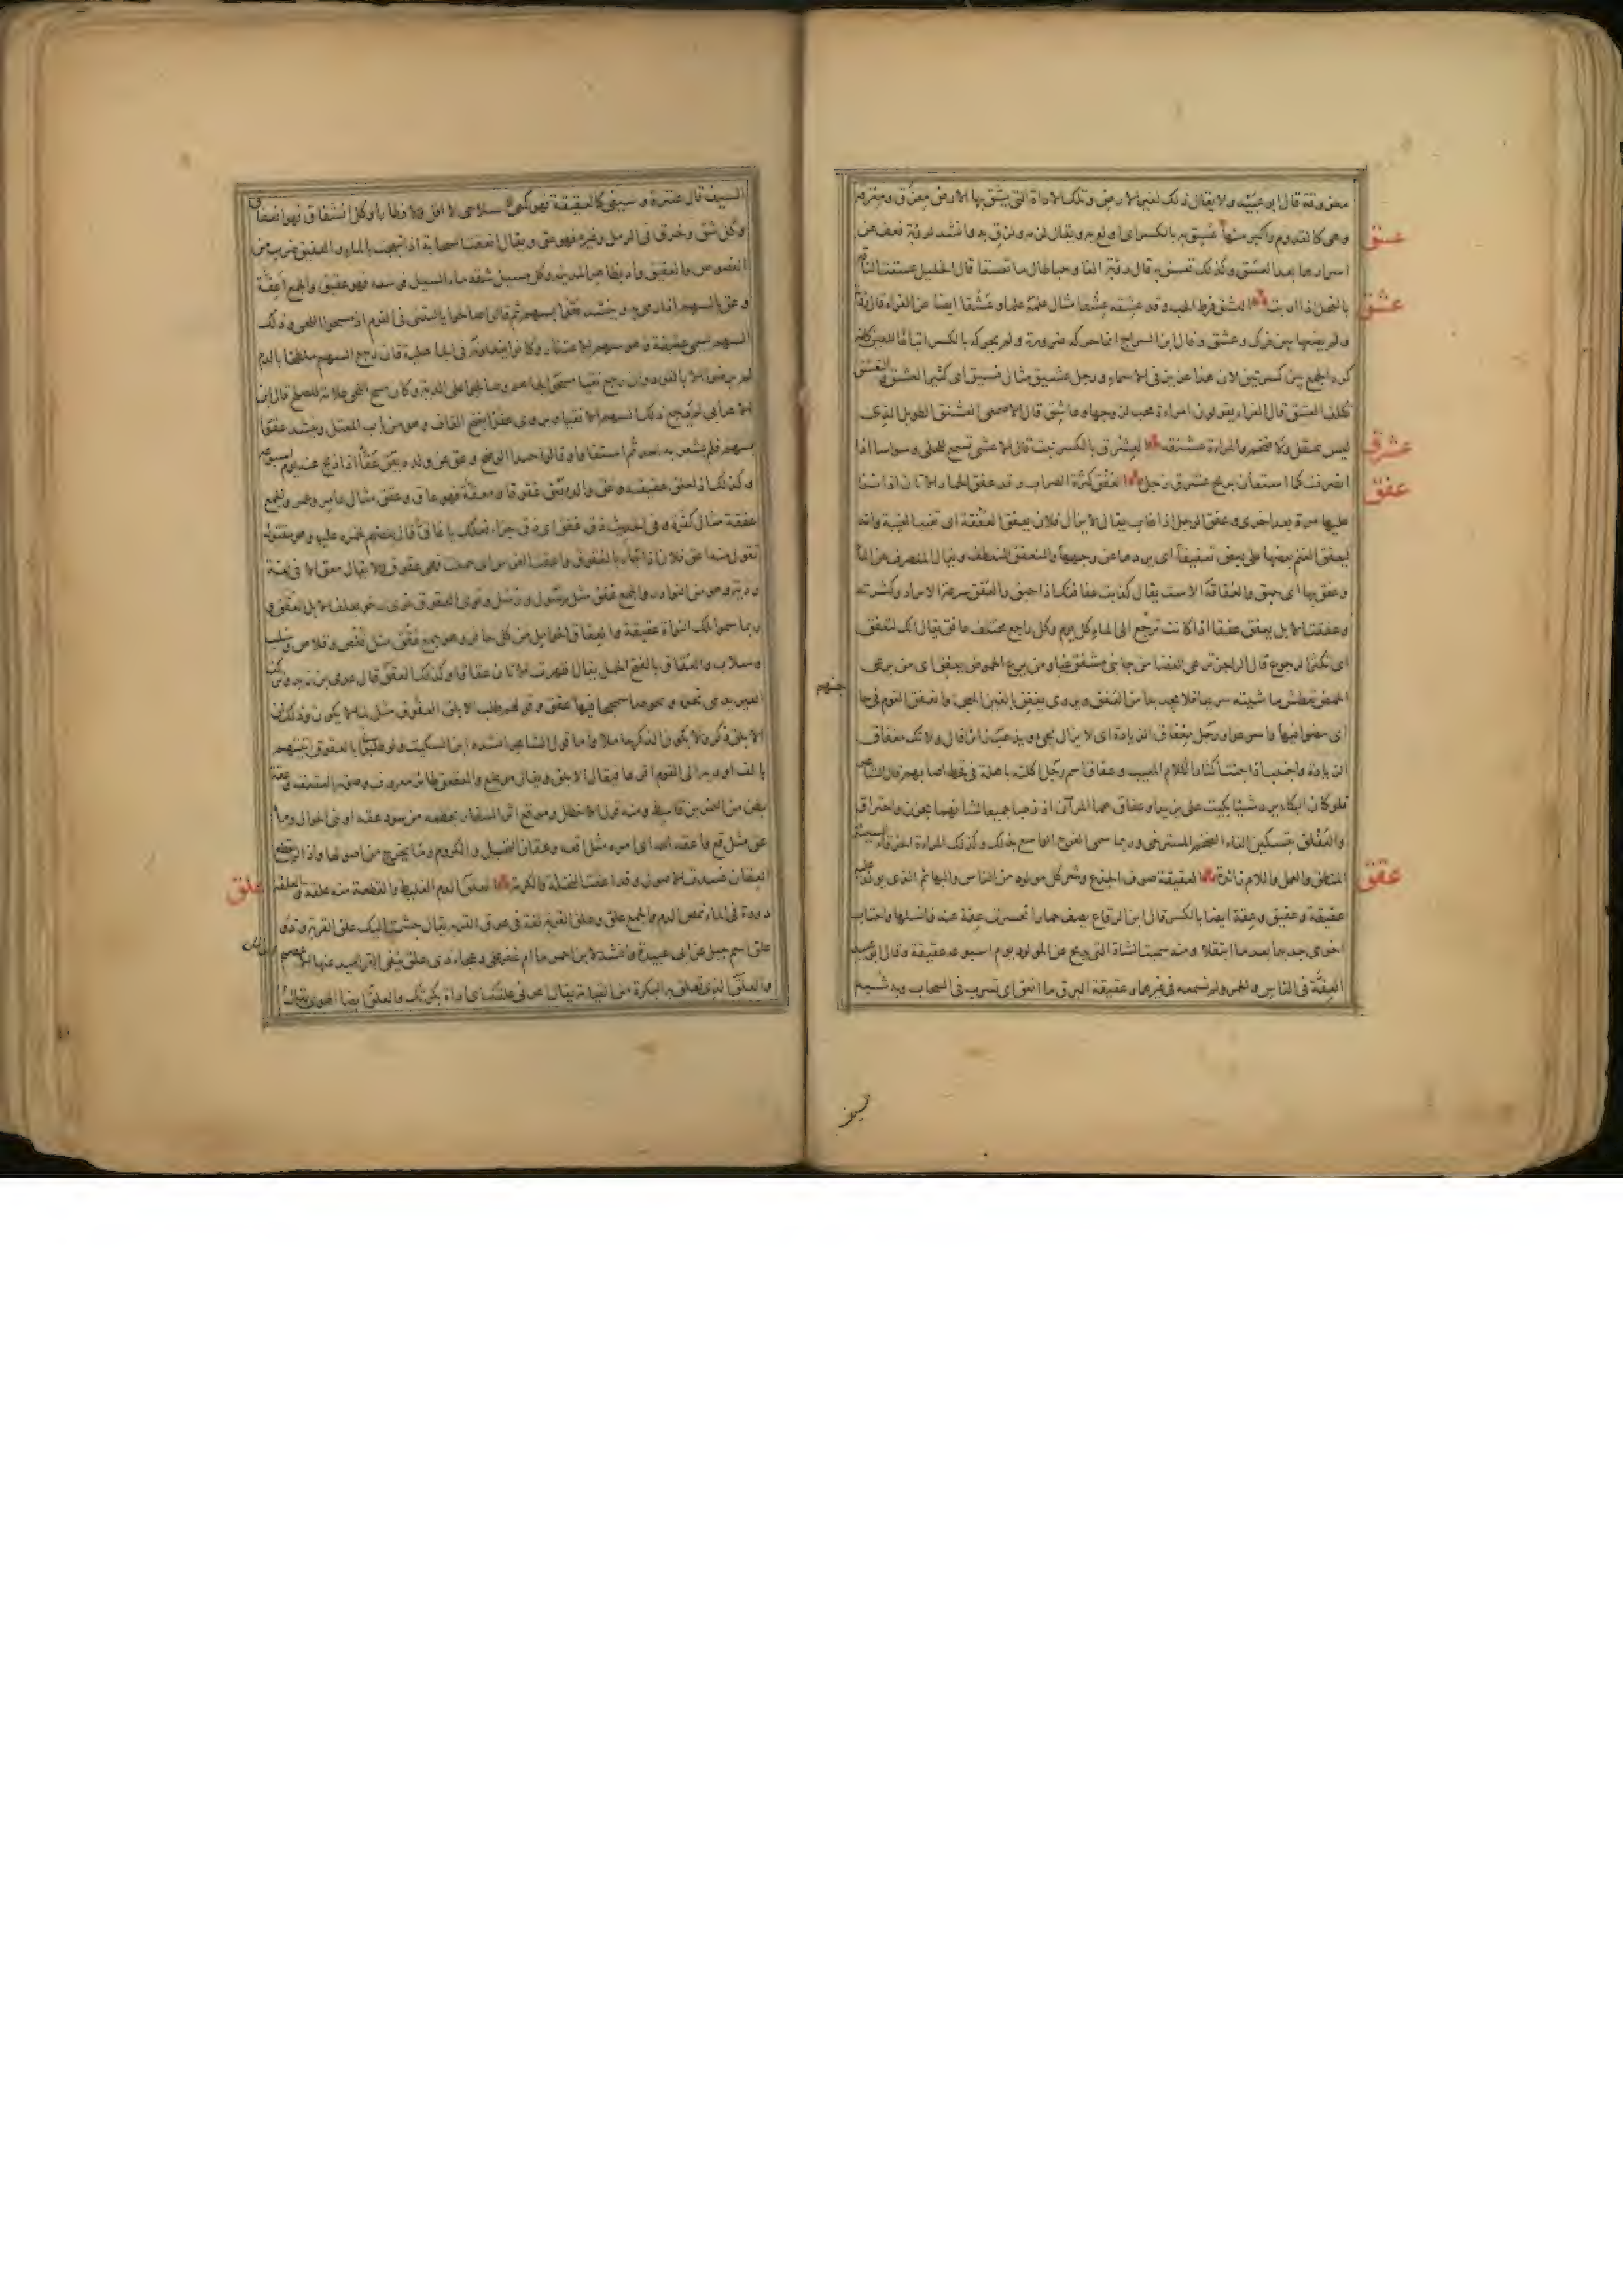 معزوقة قال ابو عبيد ولا يقال ذلك لغير الارض وتلك الاداة التي يشق بها الارض معزق ومعزقة
وهي كالقدوم واكبر منها عسق به بالكسر اى اولع به ويقال لزمه ولزق به وانشد لرؤبة فعف عن
عسق
اسرارها بعد العسق وكذلك تعسق به قال رؤبة الفا وحبا طال ما تعسقا قال الخليل عسقت الناقة
بالفحل اذا اربت العشق فرط الحب وقد عشقه عشقا مثال علمه علما وعشقا ايضا عن الفراء قال رؤبة
عشق
ولم يضعها بين فرك وعشق وقال ابن السراج انما حركه ضرورة ولم يحركه بالكسر اتباعا للعين كانه
كره الجمع بين كسرتين لان هذا عزيز في الاسماء ورجل عشيق مثال فسيق اى كثير العشق والتعشق
تكلف العشق قال الفراء يقولون امراءة محب لزوجها وعاشق قال الاصمعى العشنق الطويل الذى
ليس بمثقل ولا ضخم والمراءة عشنقه العشرق بالكسر نبت قال الاعشى تسمع للحلى وسواسا اذا
عشرق
انصرفت كما استعان بريح عشرق زجل العفق كثرة الضراب وقد عفق الحمار الاتان اذا اتاها
عفق
عليها مرة بعد اخرى وعفق الرجل اذا غاب يقال لا يزال فلان يعفق العفقة اى يغيب الغيبة وانه
ليعفق الغنم بعضها على بعض تعفيقا اى يردها عن وجهها والمنعفق المنعطف ويقال المنصرف عن الماء
وعفق بها اى حبق والعفاقة الاست يقال كذبت عفاقتك اذا حبق والعفق سرعة الايراد وكثرته
وعفقت الابل يعفق عفقا اذا كانت ترجع الى الماء كل يوم وكل راجع مختلف عافق يقال انك لتعفق
اى تكثر الرجوع قال الراجز ترعى الغضا من جانبى مشفق غبا ومن يرع الحموض يعفق اى من يرعى
الحمض تعطش ماشيته سريعا فلا يجد بدا من العفق ويروى يغفق بالغين المعجمة وانعفق القوم في حا
جتهم
اى مضوا فيها واسرعوا ورجل معفاق الزيادة اى لا يزال يجئ ويذهب زائرا قال ولا تك معفاق
الزيادة واجتنب اذا جئت اكثار الكلام المعيب وعفاق اسم رجل اكلته باهلة في قحط اصابهم قال الشاعر
فلو كان البكاء يرد شيئا بكيت على يزيد او عفاق هما المرآن اذ ذهبا جميعا لشانهما بحزن واحتراق
والعفلق بتسكين الفاء الضخم المسترخى وربما سمى الفرج الواسع بذلك وكذلك المراءة الخرقاء السيئة
المنطق والعمل واللام زائدة العقيقة صوف الجذع وشعر كل مولود من الناس والبهائم الذى يولد عليه
عقق
عقيقة وعقيق وعقة ايضا بالكسر قال ابن الرقاع يصف حمارا تحسرت عقة عنه فانسلها واجتاب
اخرى جديدا بعد ما ابتقلا ومنه سميت الشاة التى تذبح عن المولود يوم اسبوعه عقيقة وقال ابو عبيد
العقة في الناس والحمر ولم نسمعه في غيرهما وعقيقة البرق ما انعق اى تسرب في السحاب وبه شبه
السيف قال عنترة وسيفى كالعقيقة فهو كمعى سلاحى لا افل ولا فطارا وكل انشقاق فهو انعقاق
وكل شق وخرق في الرمل وغيره فهو عق ويقال انعقت السحابة اذا تبعجت بالماء والعقيق ضرب من
الفصوص والعقيق واد بظاهر المدينة وكل مسيل شقه ماء السيل فوسعه فهو عقيق والجمع اعقة
وعق بالسهم اذا رمى به وينشد عقوا بسهم ثم قالوا صالحوا يا ليتنى في القوم اذ مسحوا اللحى وذلك
السهم يسمى عقيقة وهو سهم الاعتذار وكانوا يفعلونه في الجاهلية فان رجع السهم ملطخا بالدم
لم يرضوا الا بالقود وان رجع نقيا مسحوا لحاهم وصالحوا على الدية وكان مسح اللحى علامة للصلح قال ابن
الاعرابى لم يرجع ذلك السهم الا نقيا ويروى عقوا بفتح القاف وهو من باب المعتل وينشد عقوا
بسهم فلم يشعر به احد ثم استفاؤا وقالوا حبذا الوضح وعق عن ولده يعق عقا اذا ذبح عنه يوم اسبوعه
وكذلك اذا حلق عقيقته وعق والده يعق عقوقا ومعقة فهو عاق وعقق مثال عامر وعمر والجمع
عققة مثال كفرة وفي الحديث ذق عقق اى ذق جزاء فعلك يا عاق قال بعضهم لحمزه عليه وهو مقتول
تقول منه اعق فلان اذا جاء بالعقوق واعقت الفرس اى حملت فهى عقوق ولا يقال معق الا في لغة
ردية وهو من النوادر والجمع عقق مثل رسول ورسل ونوى العقوق نوى رخو تعلفه الابل العقق و
ربما سموا تلك النواة عقيقة والعقاق الحوامل من كل حافر وهو جمع عقق مثل قلص وقلاص وسلب
وسلاب والعقاق بالفتح الحمل يقال اظهرت الاتان عقاقا وكذلك العقق قال عدى بن زيد وتركت
العير يدمى نحره ونحوصا سمحجا فيها عقق وقولهم طلب الابلق العقوق مثل لما لا يكون وذلك ان
الابلق ذكر ولا يكون الذكر حاملا واما قول الشاعر انشده ابن السكيت ولو طلبوا بالعقوق اتيتهم
بالف اوديه الى القوم اقرعا فيقال الابلق ويقال موضع والعقعق طائر معروف وصوته العقعقة وعقة
بطن من النمر بن قاسط ومنه قول الاخطل وموقع اثر السفار بخطمه من سود عقة او بنى الجوال وماء
عق مثل قع واعقه الله اى امره مثل اقعه وعقان النخيل والكروم وما يخرج من اصولها واذا لم يقطع
العقان فسدت الاصول وقد اعقت النخلة والكرمة العلق الدم الغليظ والقطعة منه علقة والعلقة
علق
دودة في الماء تمص الدم والجمع علق وعلق القربة لغة في عرق القربة يقال جشمت اليك علق القربة وذو
علق اسم جبل عن ابى عبيدة وانشد لابن احمر ما ام غفر على دعجاء ذى علق ينفى القراميد عنها الاعصم
والعلق الذى تعلق به البكرة من القامة يقال اعرنى علقك اى اداة بكرتك والعلق ايضا الهوى يقال